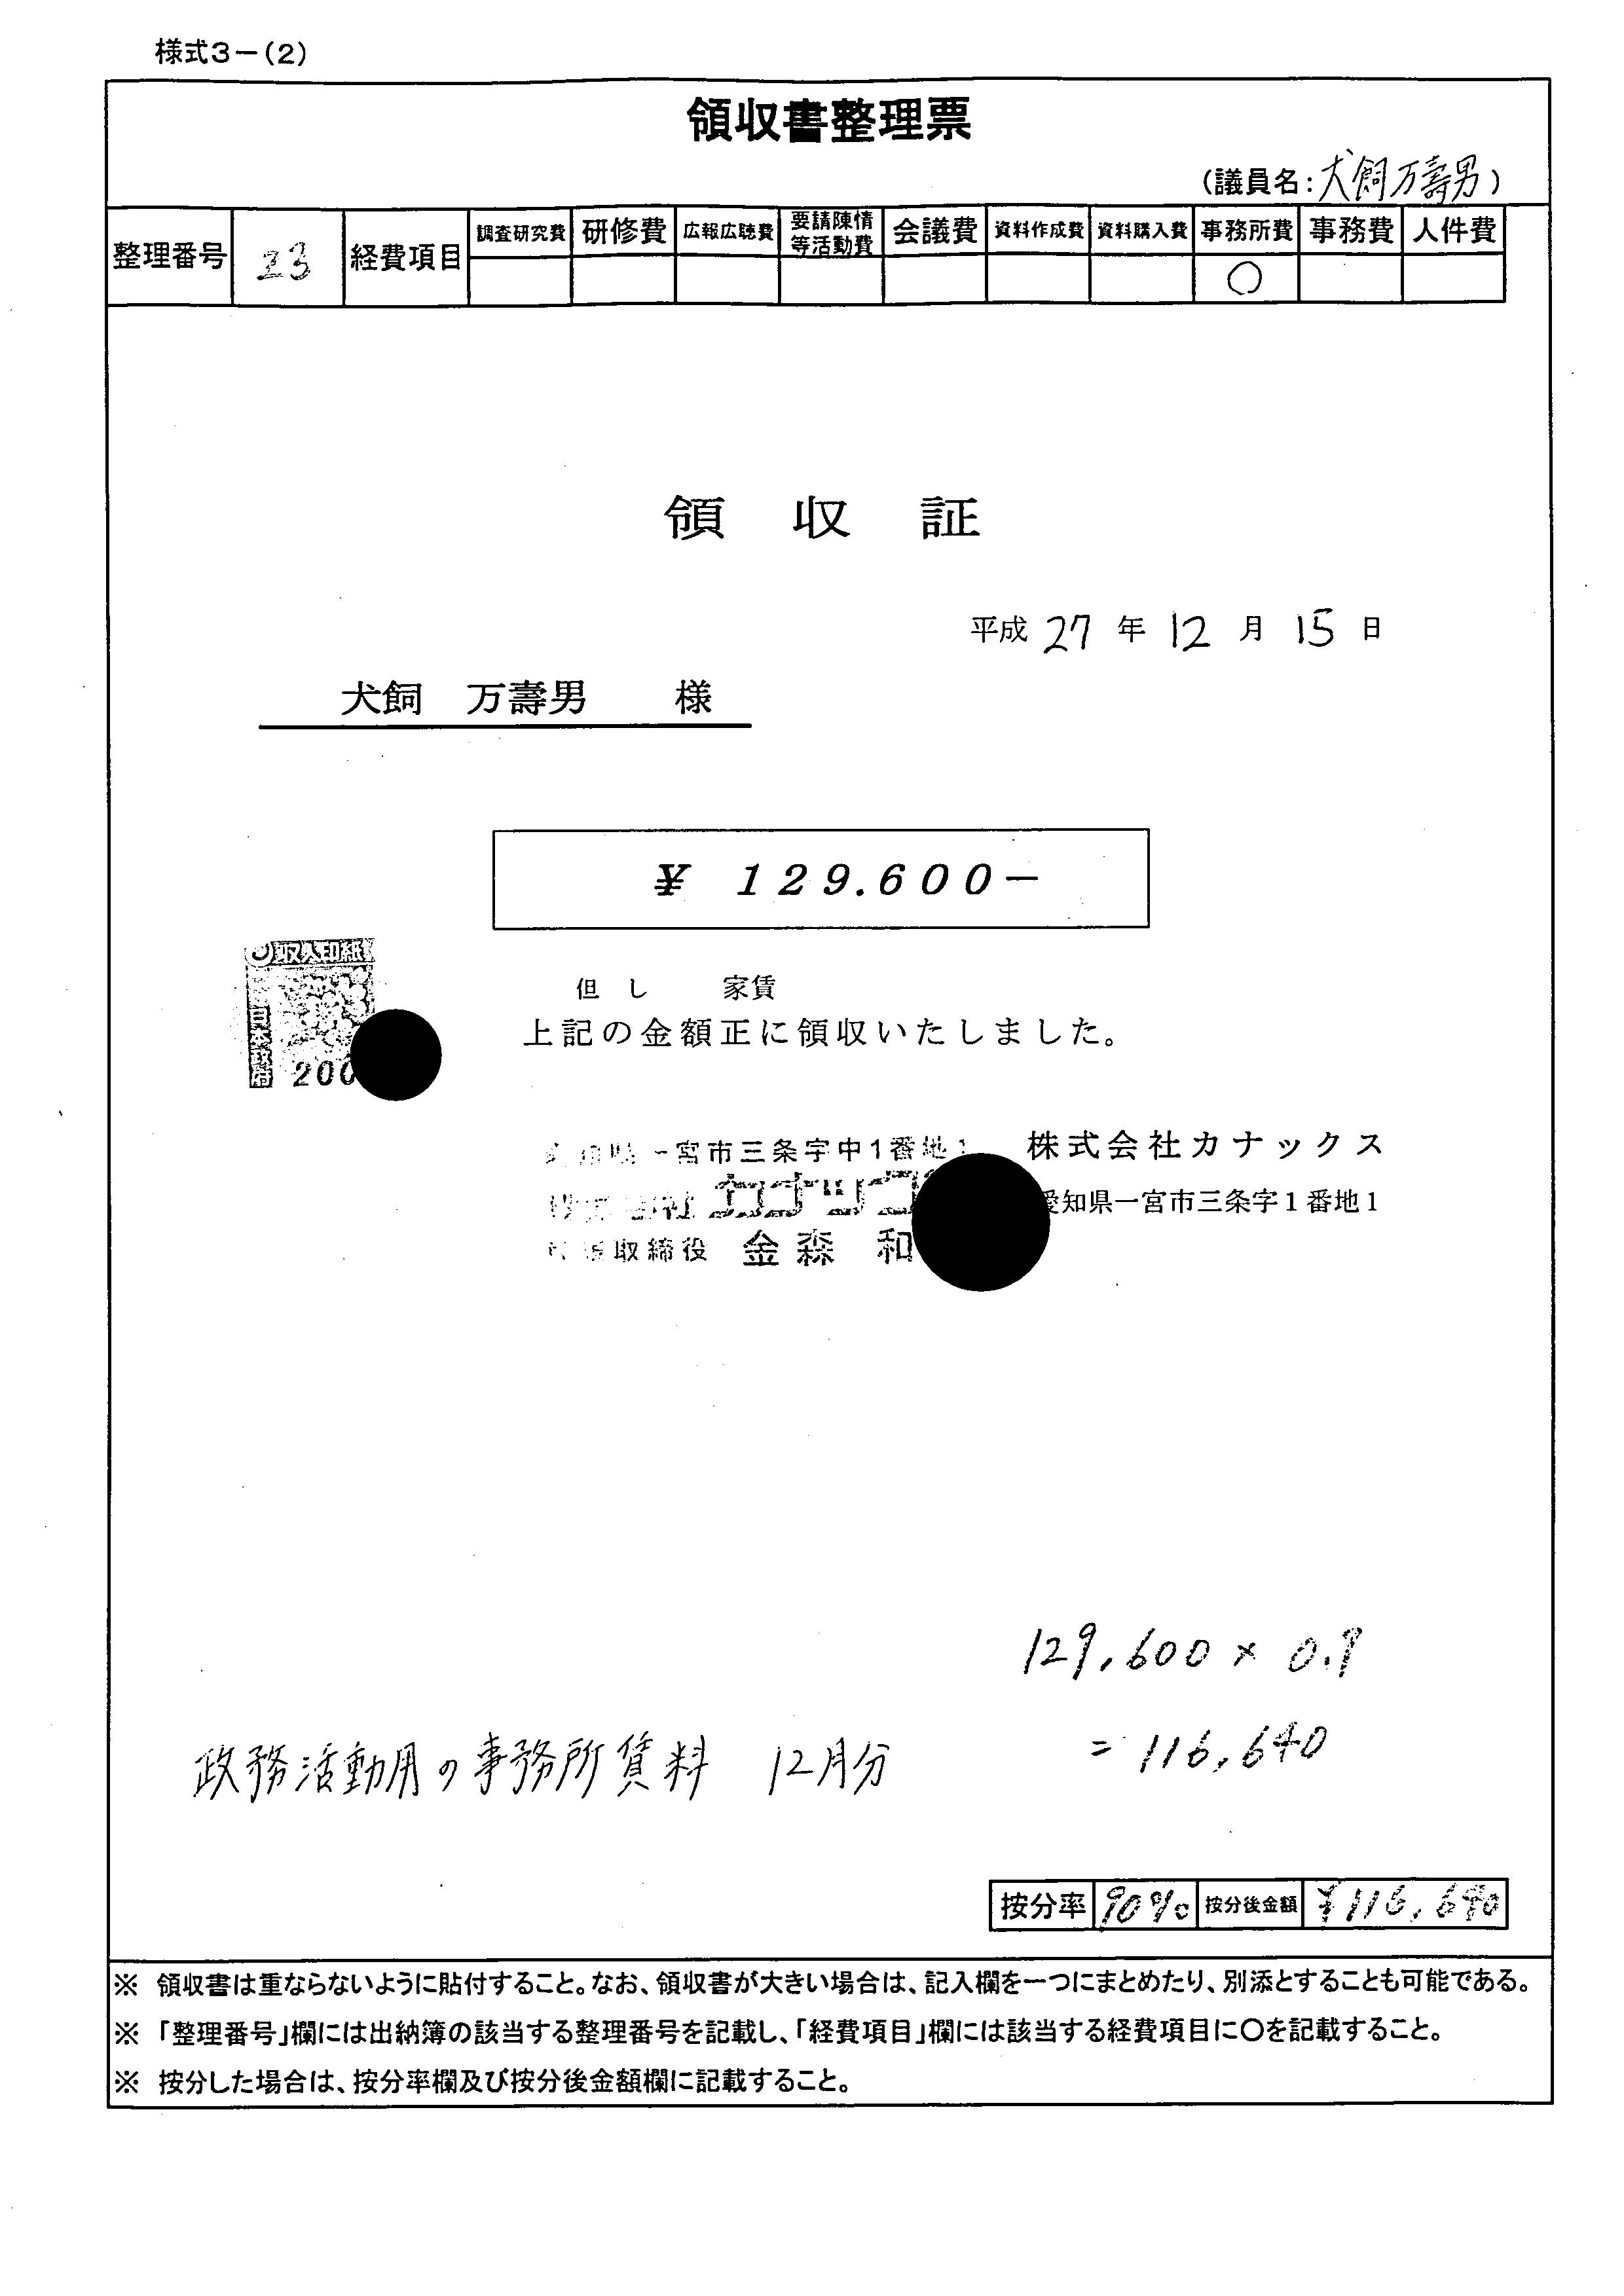 様式3－(2)
領収書整理票
(議員名:犬飼万壽男)
整理番号 23 経費項目 調査研究費 研修費 広報広聴費 要請陳情等活動費 会議費 資料作成費 資料購入費 事務所費 事務費 人件費
○
領収証
平成 27 年 12 月 15 日
犬飼 万壽男 様
¥ 129.600－
収入印紙
日本政府
200
但し 家賃
上記の金額正に領収いたしました。
一宮市三条字中1番地1
株式会社カナックス
愛知県一宮市三条字1番地1
取締役 金森 和
129,600 × 0.9
= 116,640
政務活動用の事務所賃料 12月分
按分率 90% 按分後金額 ¥116,640
※ 領収書は重ならないように貼付すること。なお、領収書が大きい場合は、記入欄を一つにまとめたり、別添とすることも可能である。
※ 「整理番号」欄には出納簿の該当する整理番号を記載し、「経費項目」欄には該当する経費項目に○を記載すること。
※ 按分した場合は、按分率欄及び按分後金額欄に記載すること。